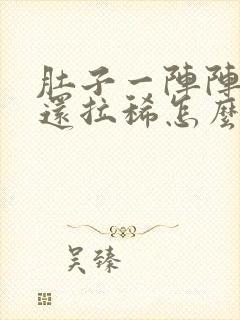 肚子一陣陣
還拉稀怎麼
吴臻